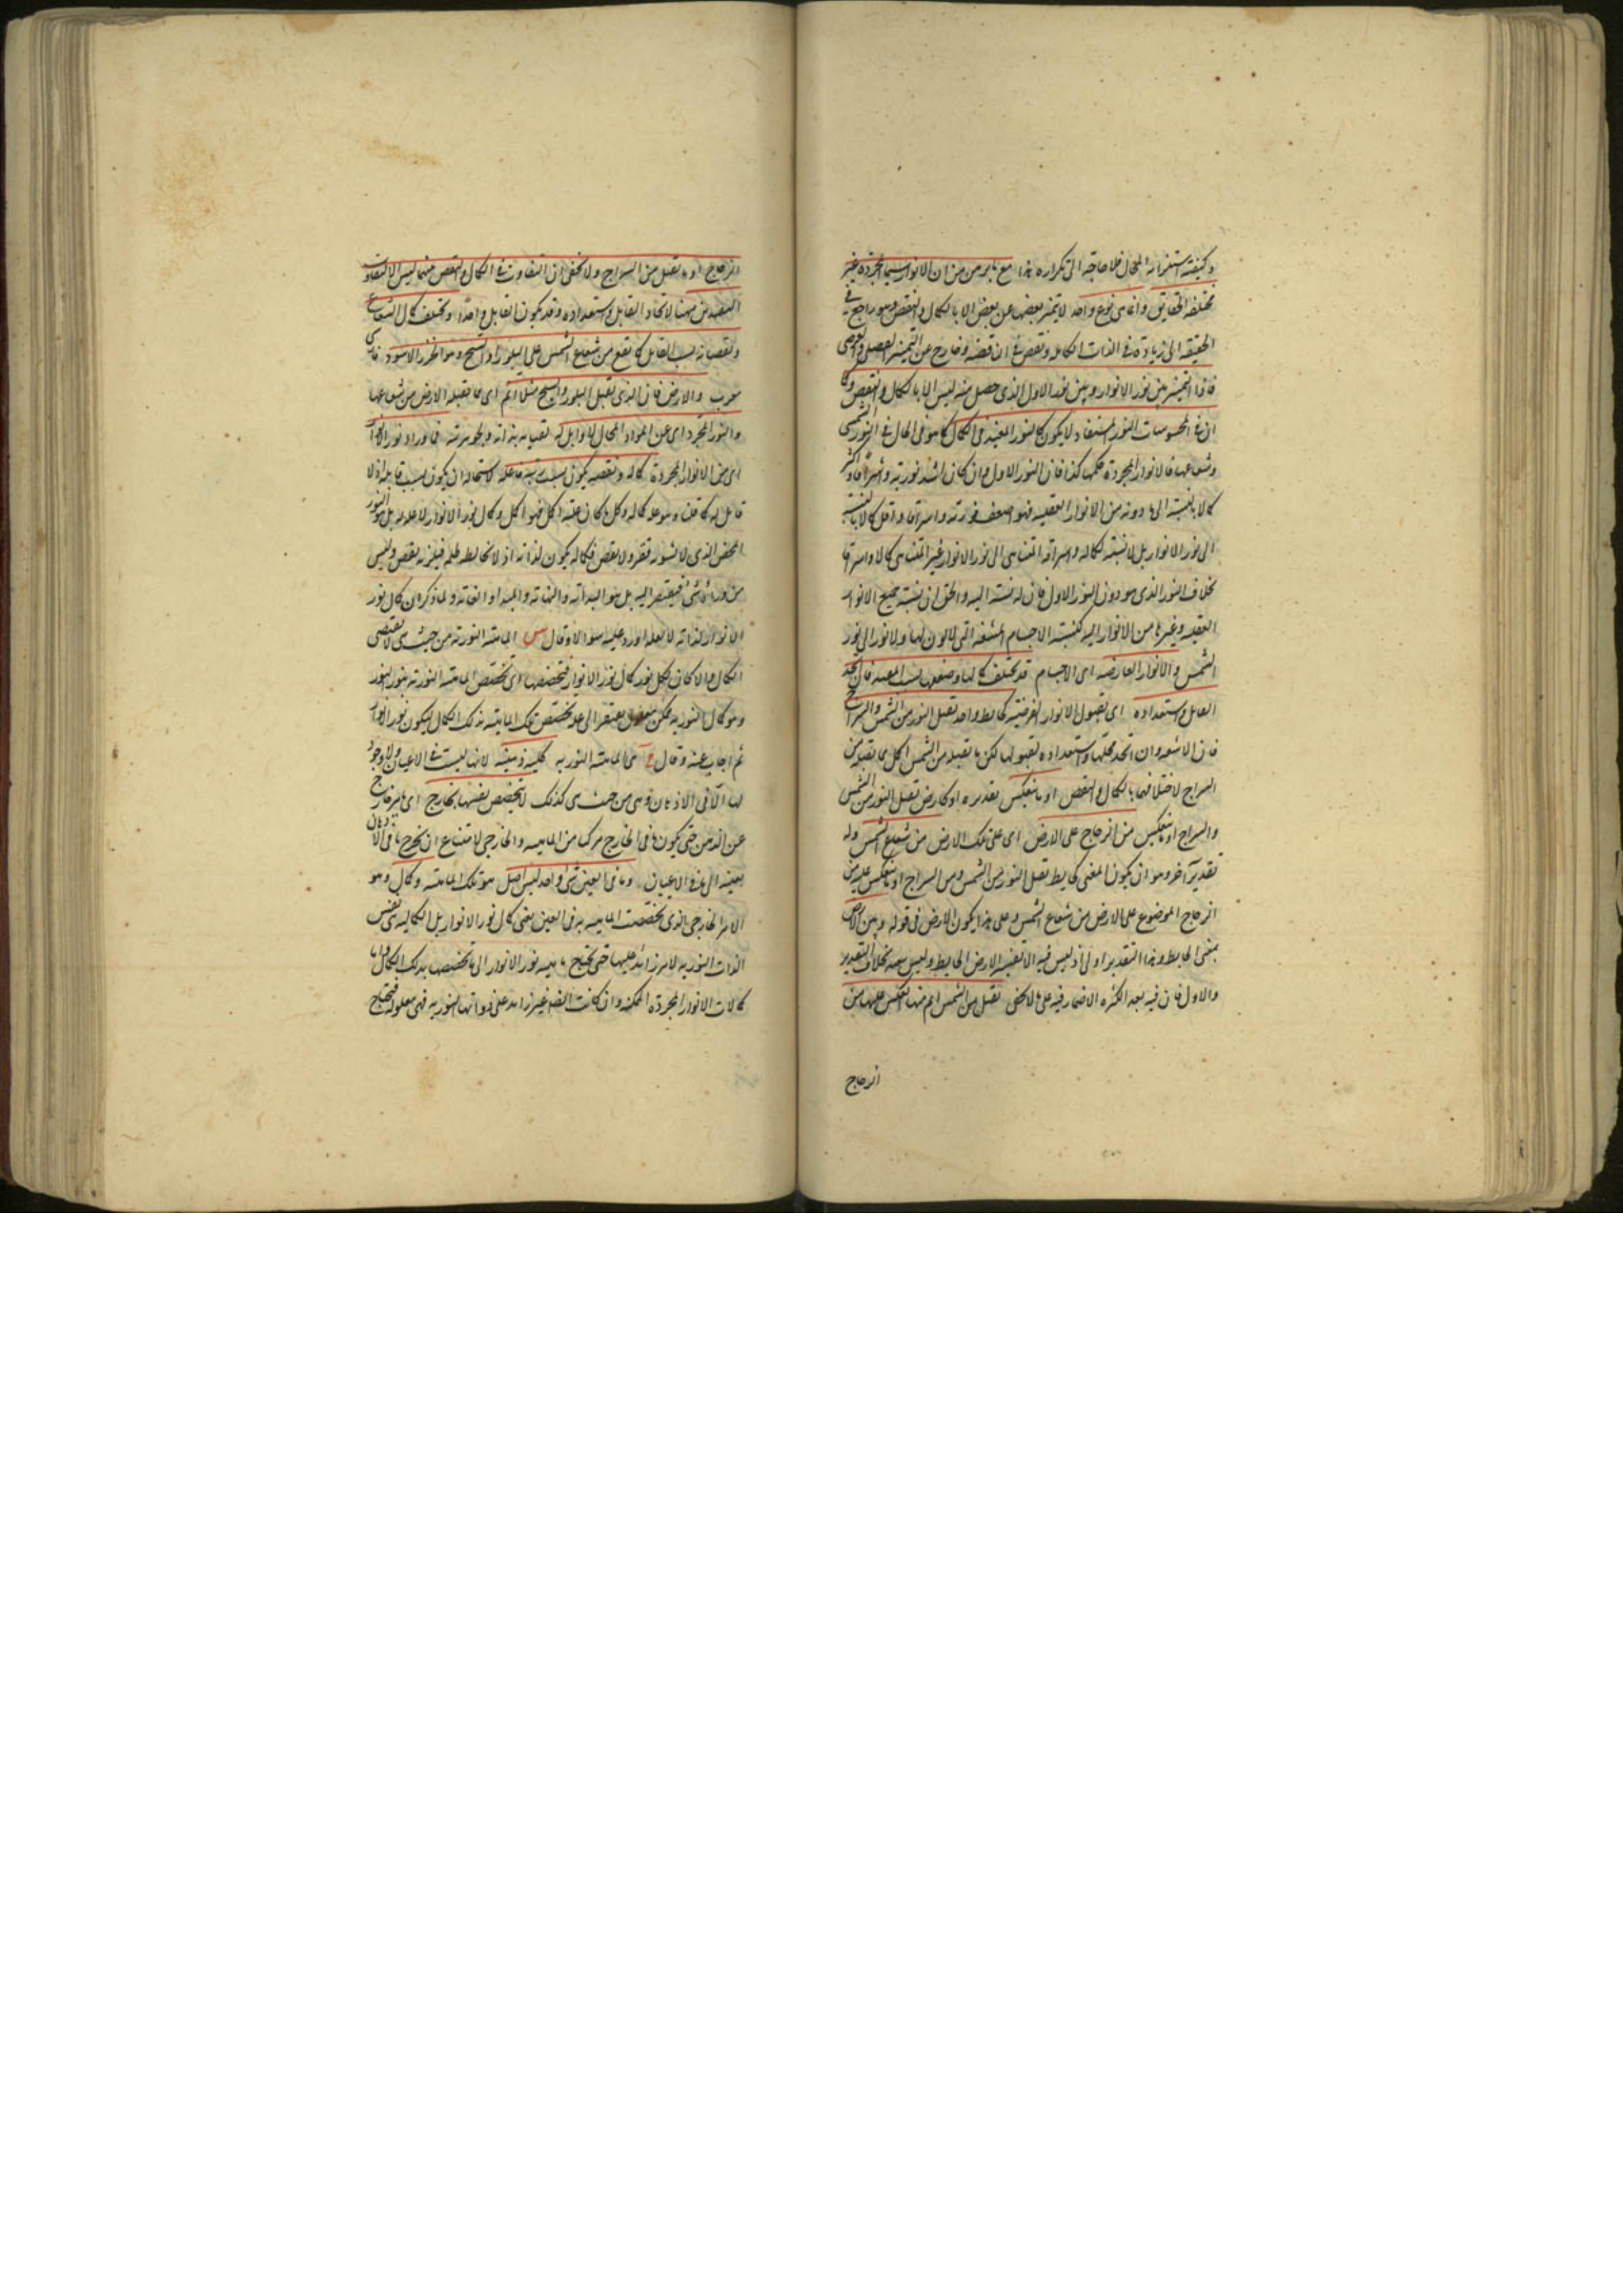 وكيفية استغرابه المحال فلا حاجة الى تكراره هذا مع ما برهن من ان الانوار سيما المجردة غير
مختلفة الحقايق وانما هى نوع واحد لا يتميز بعضها عن بعض الا بالكمال والنقص وهو راجع فى
الحقيقة الى زيادة فى الذات الكاملة ونقص فى الناقصة وخارج عن التميز الفصلى والعرضى
فاذا التميز بين نور الانوار وبين نور الاول الذى حصل منه ليس الا بالكمال والنقص وكما
ان فى المحسوسات النور المستفاد لا يكون كالنور المفيد فى الكمال كما هو فى الحال فى النور الشمسى
وشعاعها فالانوار المجردة حكمها كذا فان النور الاول وان كان اشد نورية واشراقا واكثر
كمالا بالنسبة الى ما دونه من الانوار العقلية فهو اضعف نورية واشراقا واقل كمالا بالنسبة
الى نور الانوار بل لا نسبة لكماله واشراقه المتناهى الى نور الانوار غير المتناهى كمالا واشراقا
بخلاف النور الذى هو دون النور الاول فان له نسبة اليه والحق ان نسبة جميع الانوار
العقلية وغيرها من الانوار اليه كنسبة الاجسام المشفة التى لا لون لها ولا نور الى نور
الشمس والانوار العارضة اى الاجسام قد يختلف كمالها وضعفها بسبب المفيد فان اتحد
القابل واستعداده اى لقبول الانوار العرضية كحايط واحد يقبل النور من الشمس والسراج
فان الاشعة وان اتحد محلها واستعداده لقبولها لكن ما يقبله من الشمس اكمل مما يقبله من
السراج لاختلافهما بالكمال والنقص او ما ينعكس تقديره او كارض تقبل النور من الشمس
والسراج او ما ينعكس من الزجاج على الارض اى على تلك الارض من شعاع الشمس وله
تقدير آخر وهو ان يكون المعنى كحايط يقبل النور من الشمس ومن السراج او ما ينعكس عليه من
الزجاج الموضوع على الارض من شعاع الشمس وعلى هذا يكون الارض فى قوله وبين الارض
بمعنى الحايط وهذا التقدير اولى اذ ليس فيه الا تفسير الارض بالحايط وليس بعيد بخلاف التقدير
والاول فان فيه بعد الكثرة الاضمار فيه على ما لا يخفى يقبل من الشمس اتم مما ينعكس عليها من
الزجاج
الزجاج او ما يقبل من السراج ولا يخفى ان التفاوت فى الكمال والنقص منهما ليس الا لتفاوت
المفيدين ههنا لاتحاد القابل واستعداده وقد يكون الفاعل واحدا ويختلف كمال الشعاع
ونقصانه بسبب القابل كما يقع من شعاع الشمس على البلور او السبج وهو الخرز الاسود فارسى
معرب والارض فان الذى يقبل البلور والسبج مثلا اتم اى مما يقبله الارض من شعاعها
والنور المجرد اى عن المواد المحال لا قابل له لقيامه بذاته وتجوهر مرتبته فما وراء نور الانوار
اى من الانوار المجردة كماله ونقصه يكون بسبب رتبة فاعله لاستحالة ان يكون بسبب قابله اذ لا
قابل له كما قلت وهو علة كماله وكل ما كان علته اكمل فهو اكمل وكمال نور الانوار لا علة له بل هو النور
المحض الذى لا يشوبه فقر ولا نقص فكماله يكون لذاته اذ لا يخالطه ظلمة فيلزمه نقص وليس
من وراءه شئ فيفتقر اليه بل هو البداية والنهاية والمبدأ والغاية ولما ذكر ان كمال نور
الانوار لذاته لا لعلة اورد عليه سؤالا وقال س الماهية النورية من حيث هى لا تقتضى
الكمال والا كان لكل نور كمال نور الانوار فتخصصها اى تخصص الماهية النورية بنور النور
وهو كمال النور به ممكن معلول يفتقر الى علة تخصص تلك الماهية بذلك الكمال ليكون نور الانوار
ثم اجاب عنه وقال ج هى الماهية النورية كلية ذهنية لانها ليست فى الاعيان ولا وجود
لها الا فى الاذهان وهى من حيث هى كذلك لا تخصص نفسها بخارج اى بامر خارج
عن الذهن حتى يكون ما فى الخارج مركبا من الماهية والخارجى لامتناع ان يخرج ما فى الاذهان
بعينه الى ما فى الاعيان وما فى العين شئ واحد ليس اصل هو تلك الماهية وكمال وهو
الامر الخارجى الذى تخصصت الماهية به فى العين يعنى كمال نور الانوار بل الكمالية هى نفس
الذات النورية لا امر زائد عليها حتى تحتاج ماهية نور الانوار الى ما تخصصها بذلك الكمال واما
كمالات الانوار المجردة الممكنة وان كانت ايضا غير زائدة على ذواتها النورية فهى معلولة فتحتاج